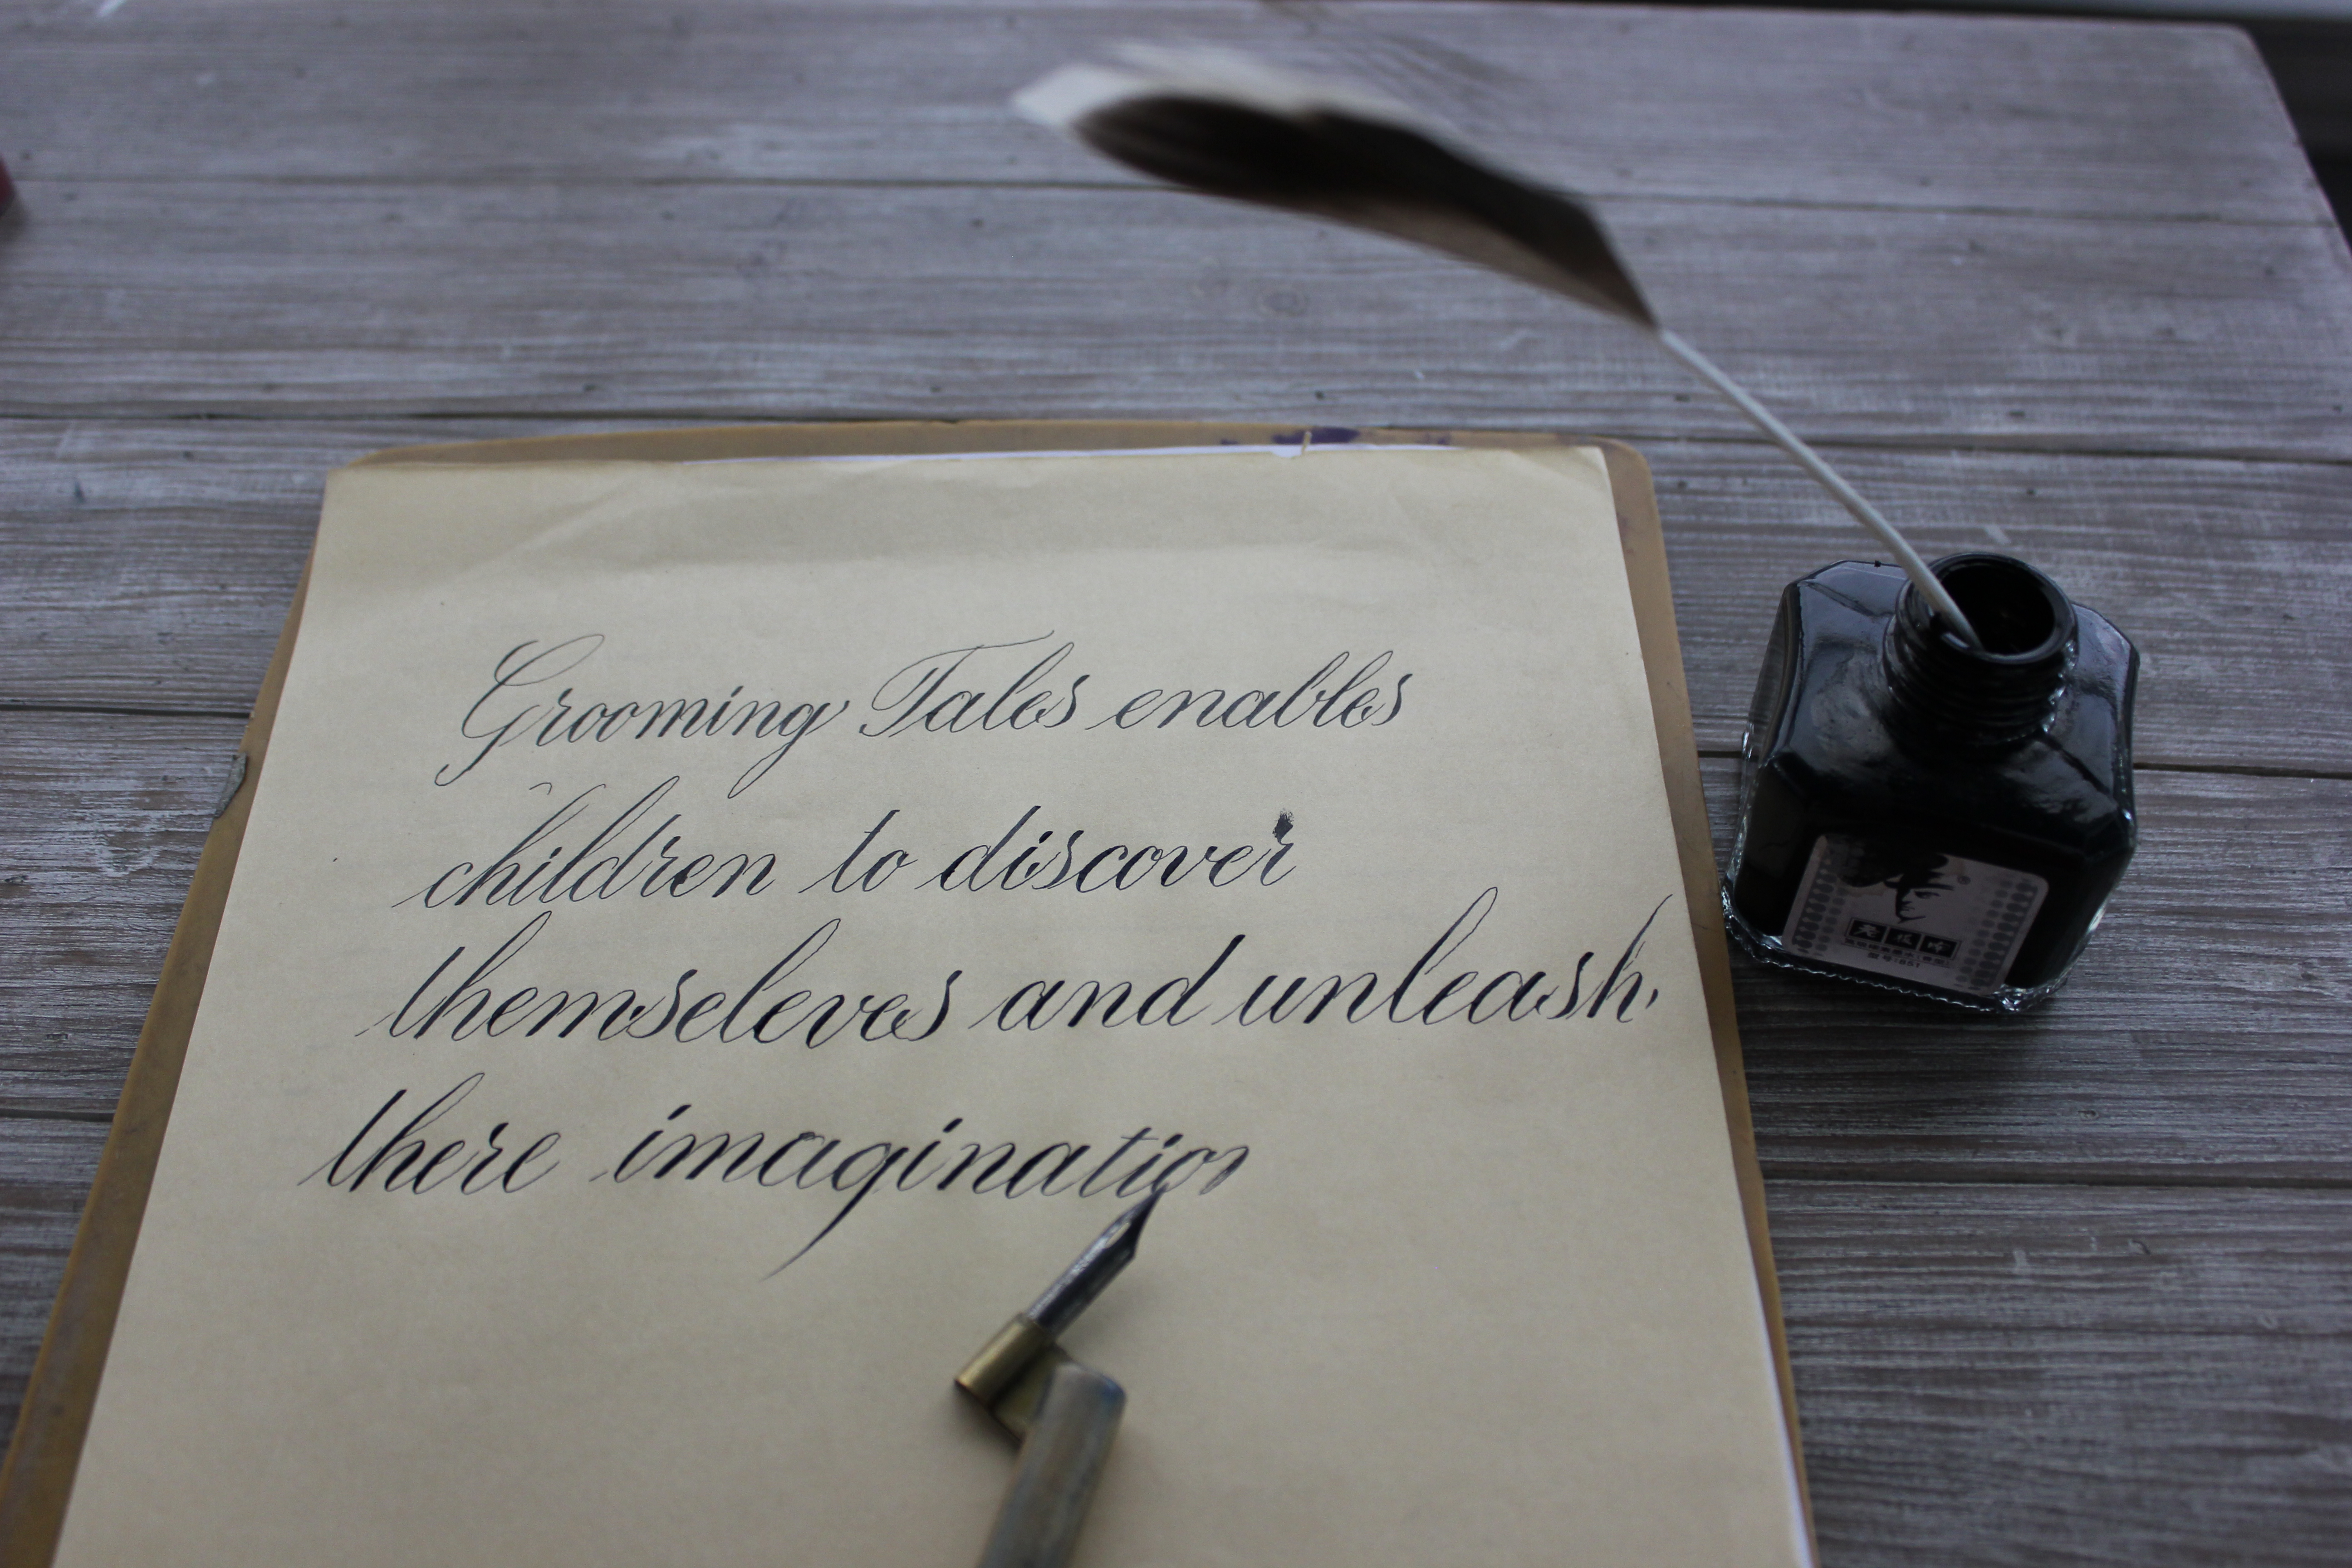 Grooming Tales enables
children to discover
themseleves and unleash
there imagination